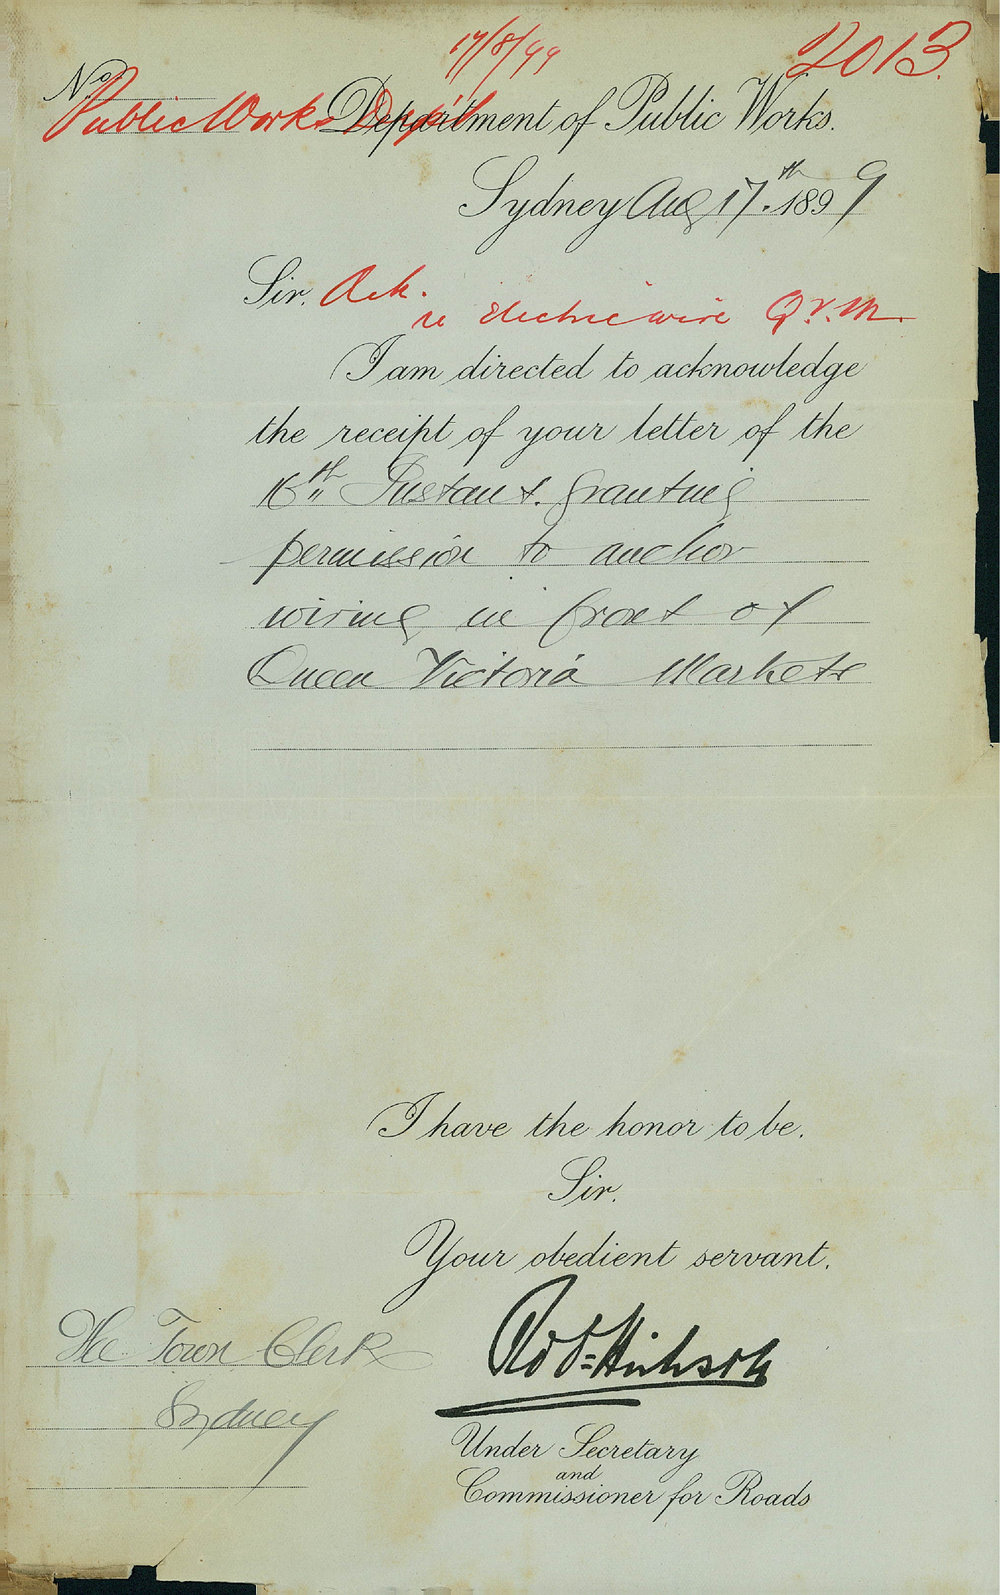 17/8/99
2013
No
Public Works Dep't
Department of Public Works.
Sydney Aug 17th 1899
Sir, Ack.
re Electric wire Q.V.M.
I am directed to acknowledge
the receipt of your letter of the
16th Instant. granting
permission to anchor
wiring in front of
Queen Victoria Markets
I have the honor to be,
Sir,
Your obedient servant,
The Town Clerk
Sydney
Under Secretary
and
Commissioner for Roads